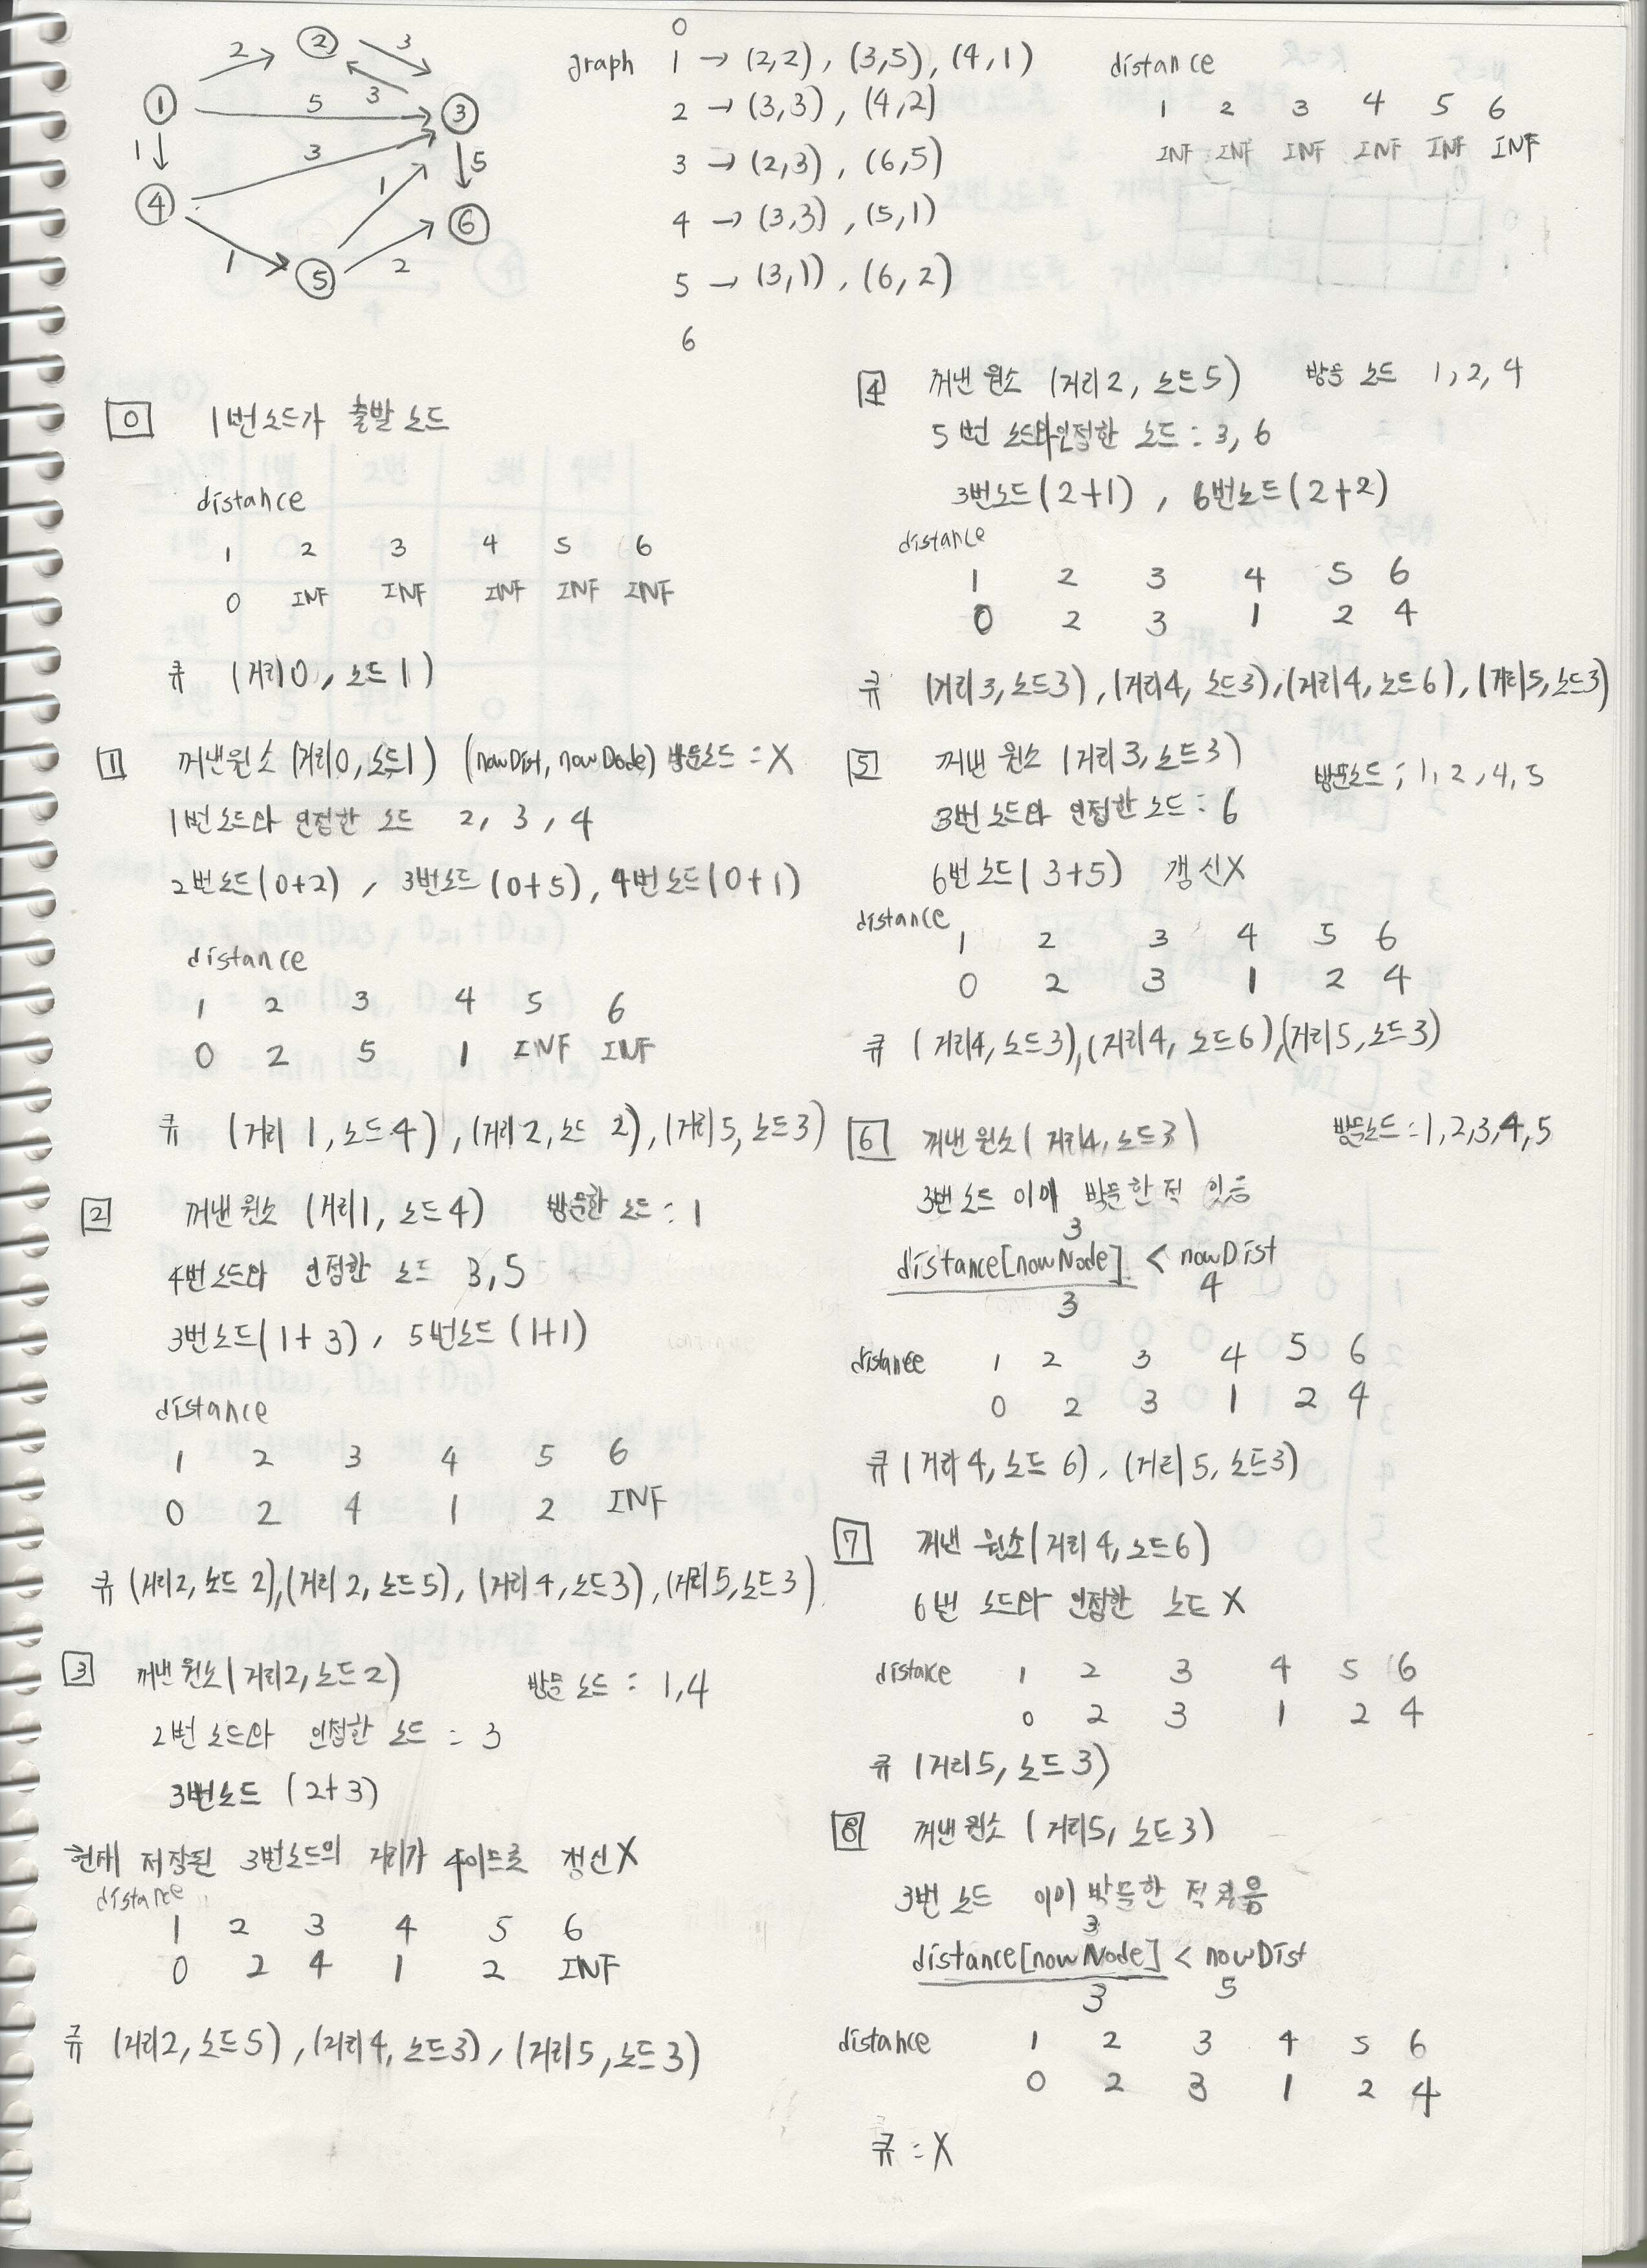 2 ② 3
① 5 3 ③
1 3 5
④ 1 ⑥
1 ⑤ 2
graph 0
1 → (2,2), (3,5), (4,1)
2 → (3,3), (4,2)
3 → (2,3), (6,5)
4 → (3,3), (5,1)
5 → (3,1), (6,2)
6
distance
1 2 3 4 5 6
INF INF INF INF INF INF
0 1번노드가 출발 노드
distance
1 2 3 4 5 6
0 INF INF INF INF INF
큐 (거리0, 노드1)
1 꺼낸원소 (거리0, 노드1) (nowDist, nowDode) 방문노드 = X
1번노드와 인접한 노드 2, 3, 4
2번노드(0+2), 3번노드(0+5), 4번노드(0+1)
distance
1 2 3 4 5 6
0 2 5 1 INF INF
큐 (거리 1, 노드4), (거리2, 노드 2), (거리5, 노드3)
2 꺼낸원소 (거리1, 노드4) 방문한 노드 : 1
4번노드와 인접한 노드 3,5
3번노드(1+3), 5번노드(1+1)
distance
1 2 3 4 5 6
0 2 4 1 2 INF
큐 (거리2, 노드 2),(거리 2, 노드5), (거리4, 노드3), (거리5, 노드3)
3 꺼낸원소(거리2, 노드2) 방문 노드 : 1,4
2번노드와 인접한 노드 = 3
3번노드 (2+3)
현재 저장된 3번노드의 거리가 4이므로 갱신X
distance
1 2 3 4 5 6
0 2 4 1 2 INF
큐 (거리2, 노드5), (거리4, 노드3), (거리5, 노드3)
4 꺼낸 원소 (거리2, 노드5) 방문 노드 1,2,4
5번 노드와인접한 노드 : 3, 6
3번노드(2+1), 6번노드(2+2)
distance
1 2 3 4 5 6
0 2 3 1 2 4
큐 (거리3, 노드3), (거리4, 노드3), (거리4, 노드6), (거리5, 노드3)
5 꺼낸 원소 (거리3, 노드3) 방문노드 ; 1, 2, 4, 5
3번노드와 인접한 노드 : 6
6번노드(3+5) 갱신X
distance
1 2 3 4 5 6
0 2 3 1 2 4
큐 (거리4, 노드3),(거리4, 노드6),(거리5, 노드3)
6 꺼낸원소(거리4, 노드3) 방문노드 = 1,2,3,4,5
3번노드 이미 방문한 적 있음
3
distance[nowNode] < nowDist
3 4
distance 1 2 3 4 5 6
0 2 3 1 2 4
큐 (거리4, 노드 6), (거리5, 노드3)
7 꺼낸 원소(거리4, 노드6)
6번 노드와 인접한 노드 X
distance 1 2 3 4 5 6
0 2 3 1 2 4
큐 (거리5, 노드3)
8 꺼낸원소 (거리5, 노드3)
3번 노드 이미 방문한 적있음
3
distance[nowNode] < nowDist
3 5
distance 1 2 3 4 5 6
0 2 3 1 2 4
큐 = X